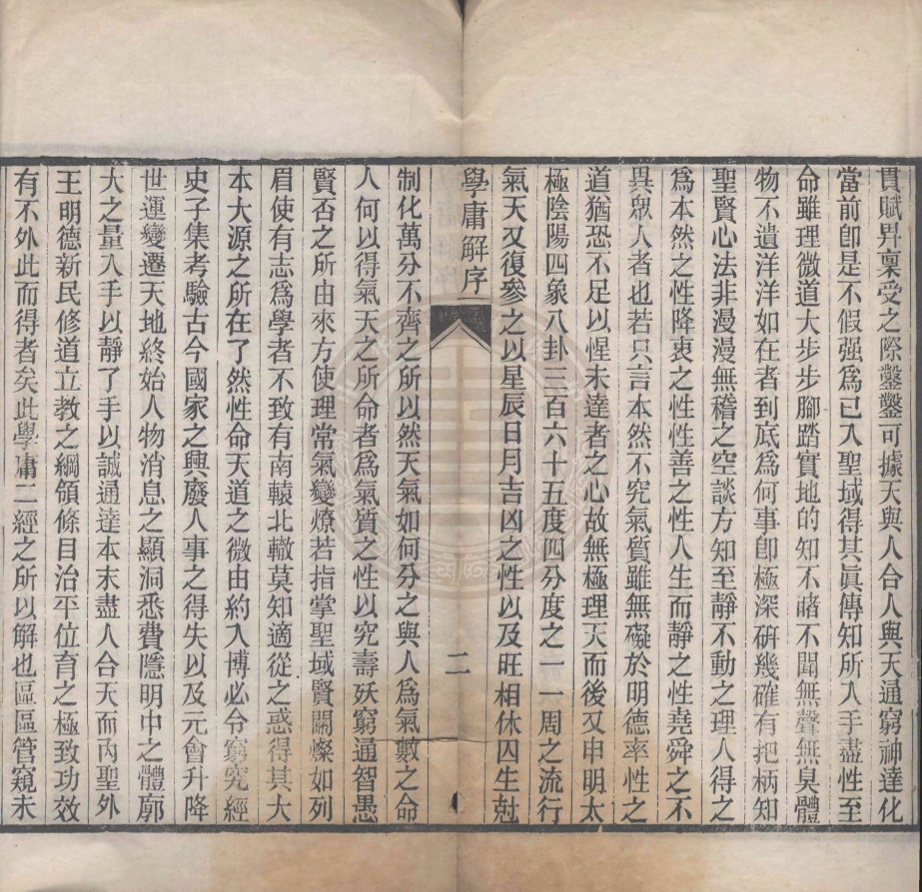 貫賦畀稟受之際鑿鑿可據天與人合人與天通窮神達化
當前卽是不假强爲已入聖域得其眞傳知所入手盡性至
命雖理微道大步步腳踏實地的知不睹不聞無聲無臭體
物不遺洋洋如在者到底爲何事卽極深硏幾確有把柄知
聖賢心法非漫漫無稽之空談方知至靜不動之理人得之
爲本然之性降衷之性性善之性人生而靜之性堯舜之不
異眾人者也若只言本然不究氣質雖無礙於明德率性之
道猶恐不足以惺未達者之心故無極理天而後又申明太
極陰陽四象八卦三百六十五度四分度之一一周之流行
氣天又復參之以星辰日月吉凶之性以及旺相休囚生尅
學庸解序
二
制化萬分不齊之所以然天氣如何分之與人爲氣數之命
人何以得氣天之所命者爲氣質之性以究壽殀窮通智愚
賢否之所由來方使理常氣變燎若指掌聖域賢關燦如列
眉使有志爲學者不致有南轅北轍莫知適從之惑得其大
本大源之所在了然性命天道之微由約入博必令窮究經
史子集考驗古今國家之興廢人事之得失以及元會升降
世運變遷天地終始人物消息之顯洞悉費隱明中之體廓
大之量入手以靜了手以誠通達本末盡人合天而內聖外
王明德新民修道立教之綱領條目治平位育之極致功效
有不外此而得者矣此學庸二經之所以解也區區管窺未